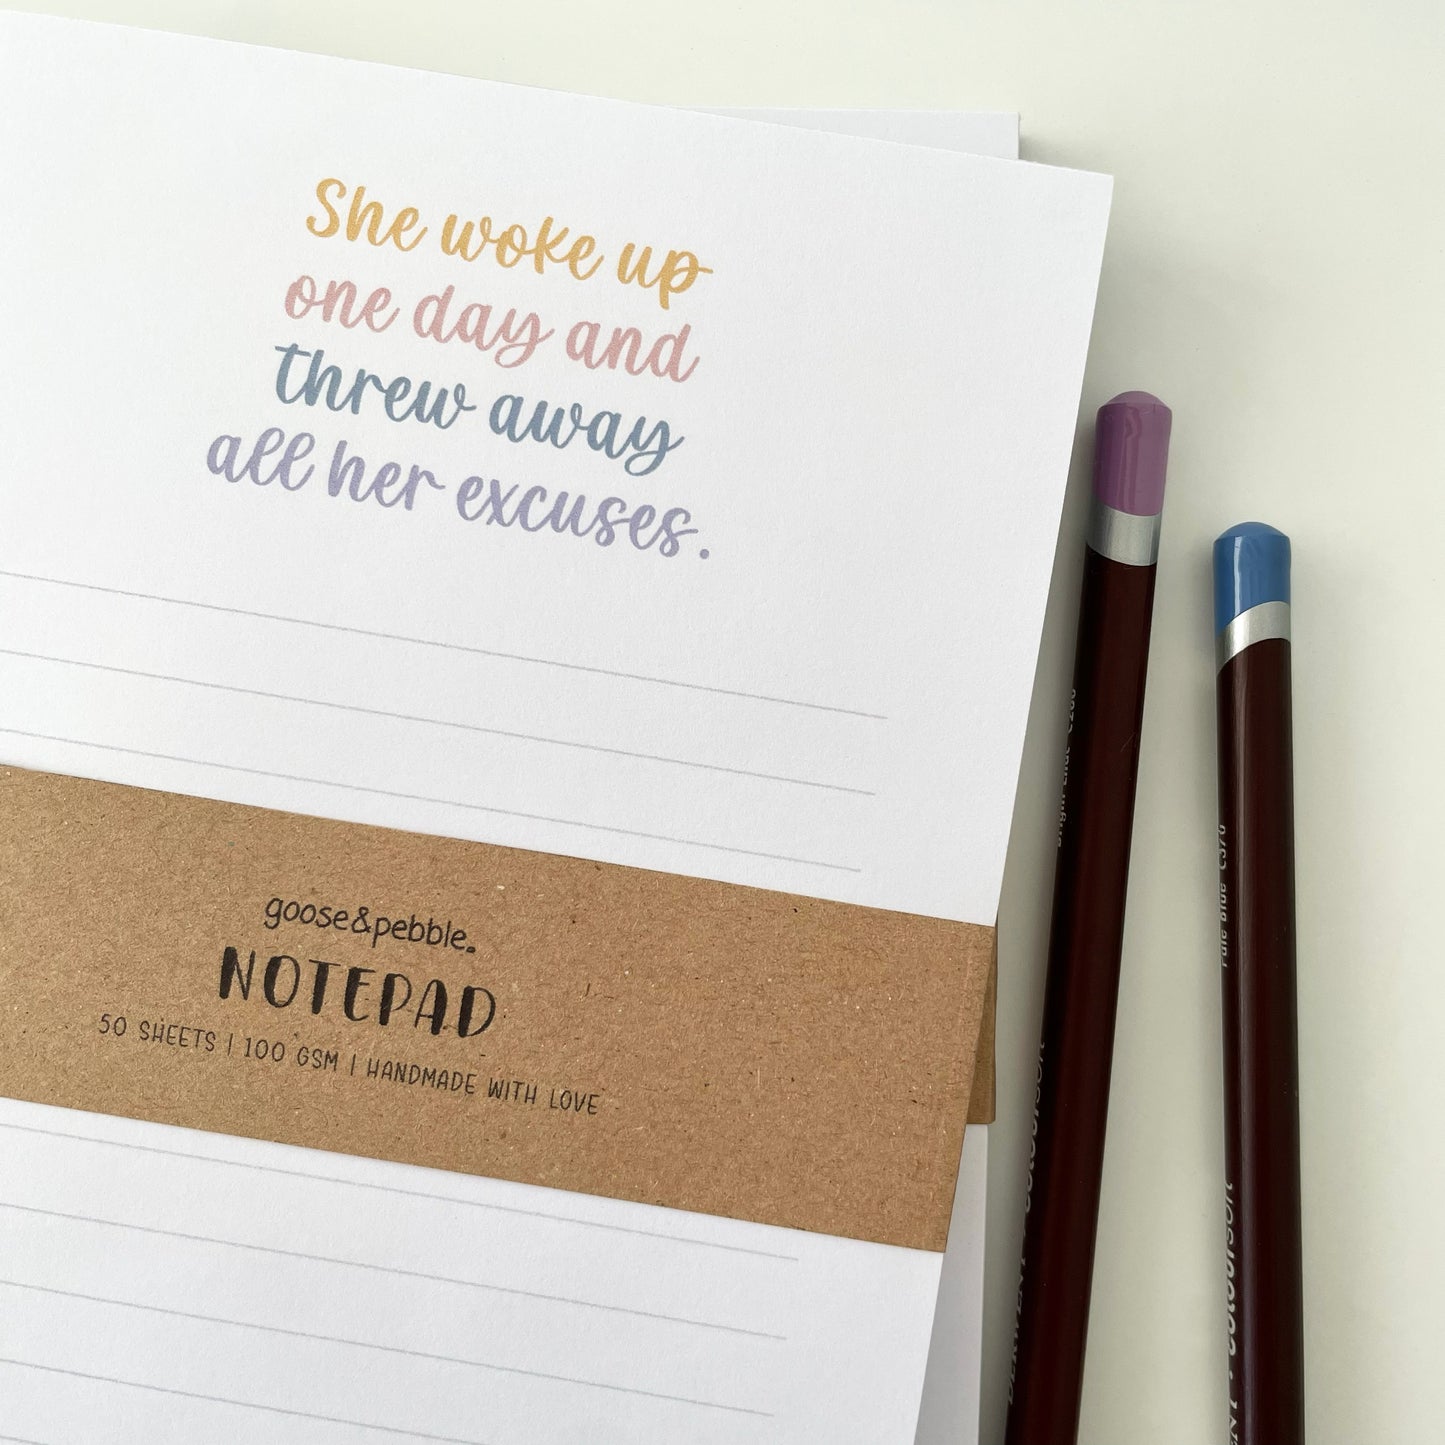 She woke up
one day and
threw away
all her excuses.
goose&pebble.
NOTEPAD
50 SHEETS | 100 GSM | HANDMADE WITH LOVE
Bright Lilac C260
DERWENT · coloursoft
Pale Blue C370
coloursoft